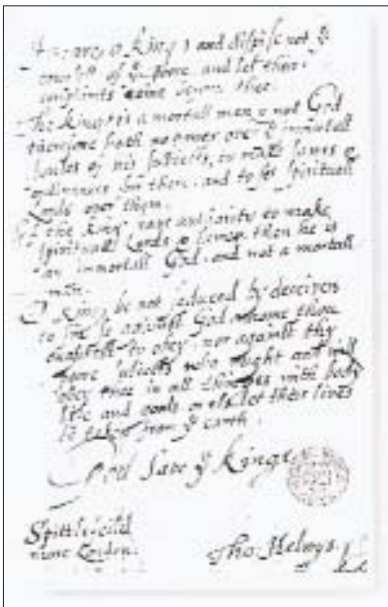 Heare o King, and dispise not ye
counsell of ye poore, and let their
complaints come before thee.
The King is a mortall man & not God
therefore hath no power over ye immortall
soules of his subiects, to make lawes &
ordinances for them, and to set spirituall
Lords over them.
If the King have authority to make
spirituall Lords & lawes, then he is
an immortall God, and not a mortall
man.
O King be not seduced by deceivers
to sin so against God whome thou
oughtest to obey, nor against thy
poore subiects who ought and will
obey thee in all thinges with body
life and goods, or els let their lives
be taken from ye earth.
God Save ye Kinge
Spittlefeild
neare London.
Tho: Helwys.